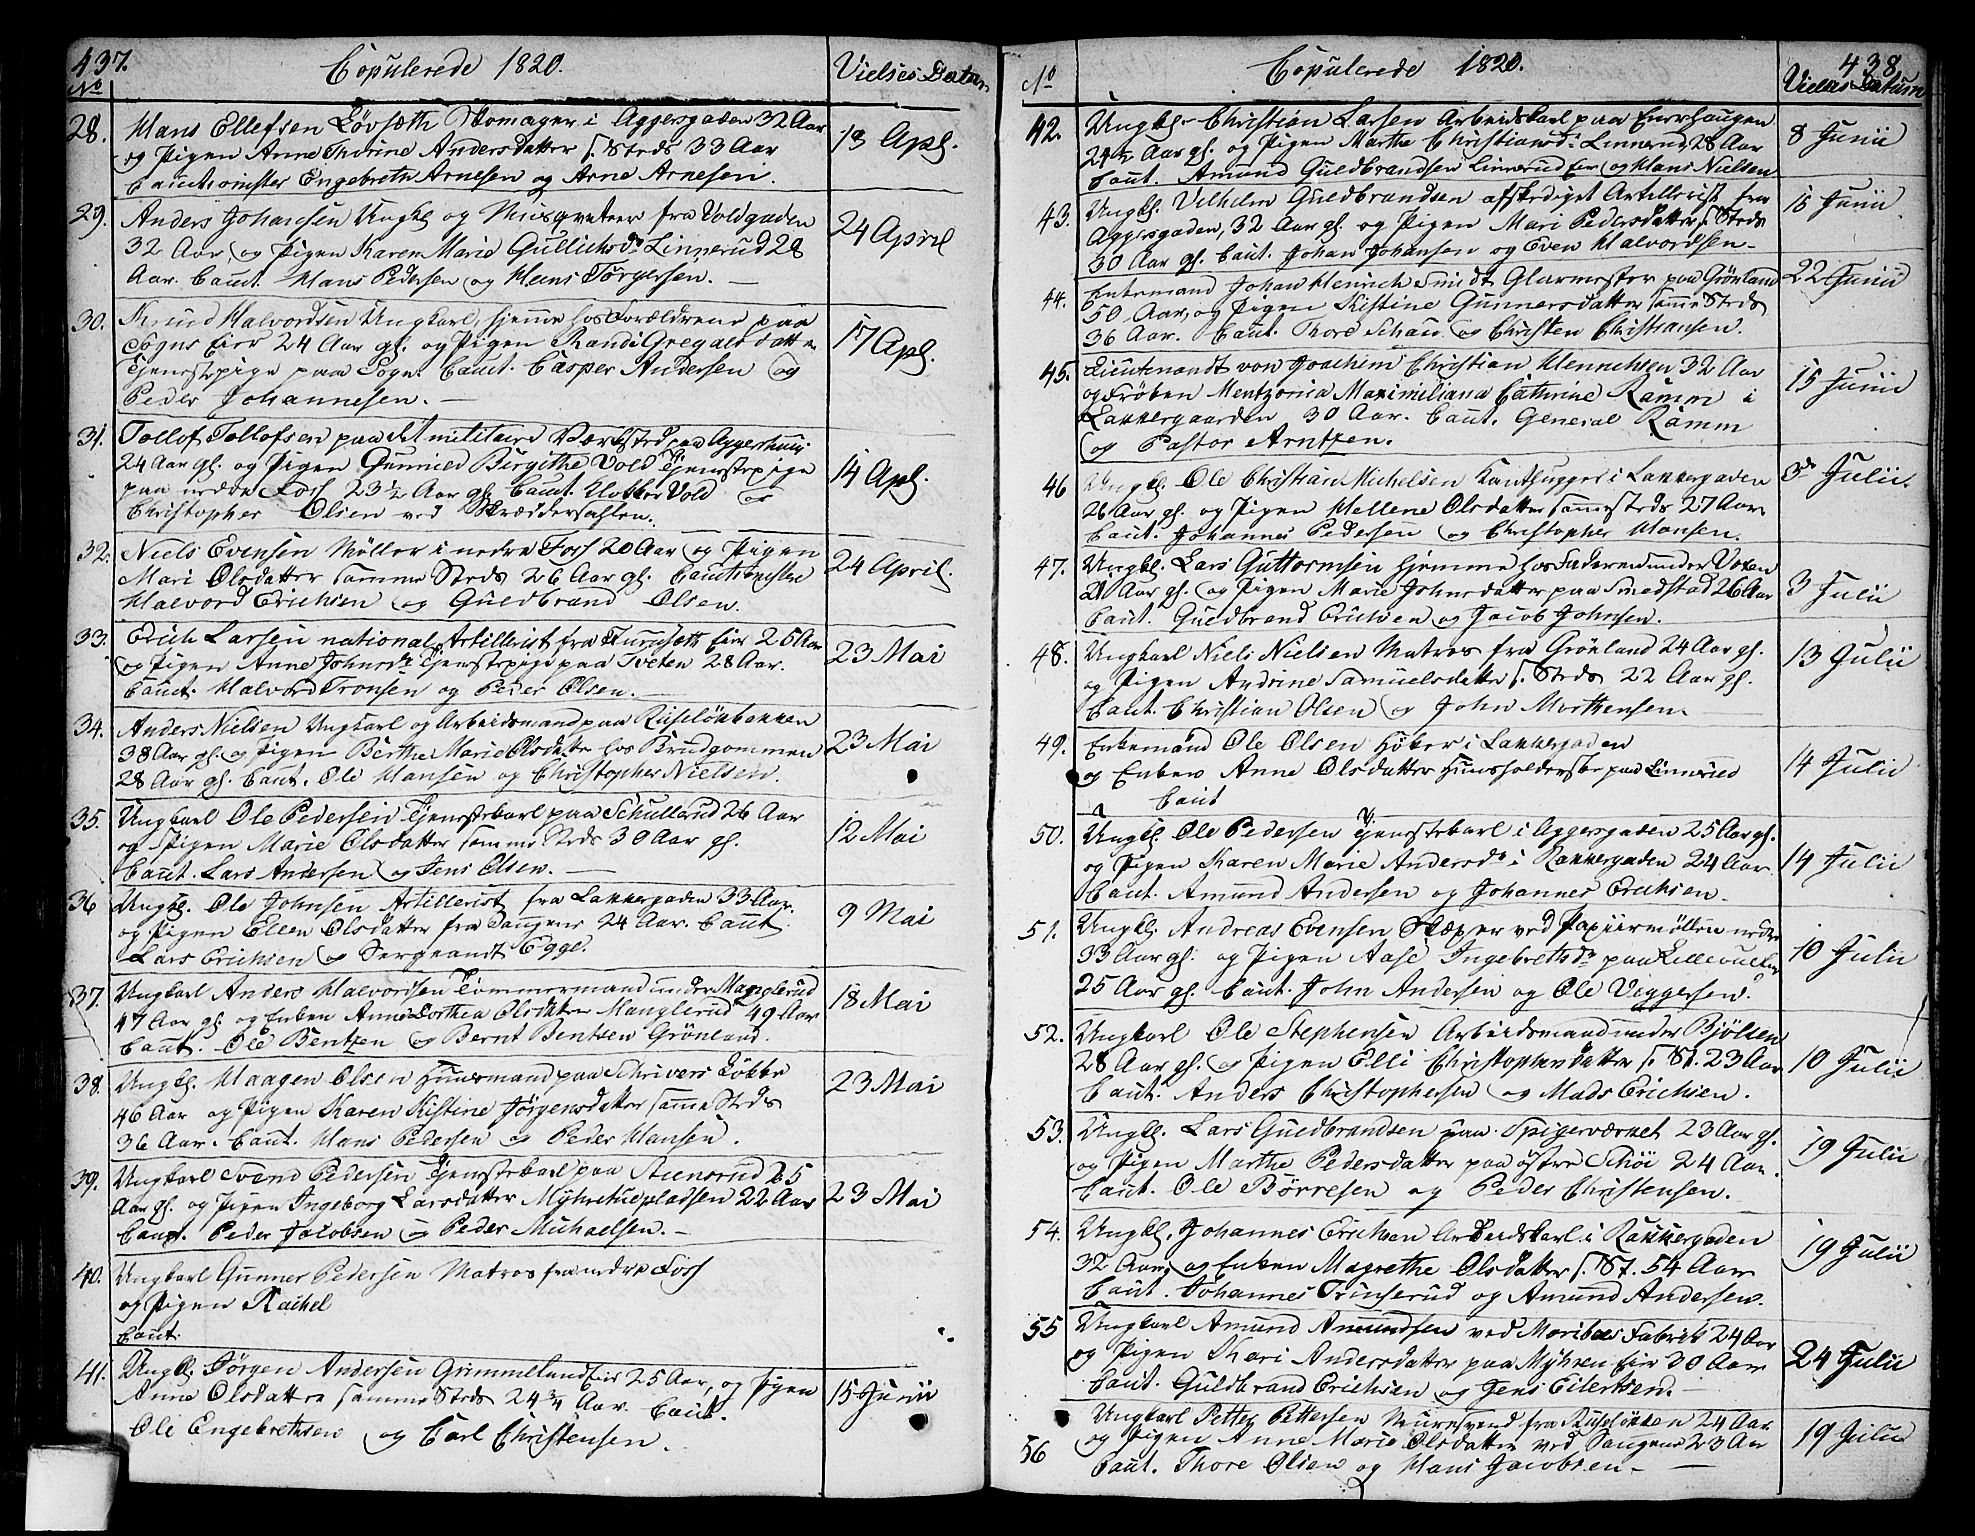 437.
Copulerede 1820.
Vielses Datum
No
28. Hans Ellefsen Lövsæth Skomager i Aggersgaden 32 Aar
og Pigen Anne Thorine Andersdatter s. Steds 33 Aar
Cautionister Engebreth Arnesen og Arne Arnesen.
13 Apl.
29. Anders Johannesen Ungkl og Musqveteer fra Voldgaden
32 Aar og Pigen Karen Marie Gullichsdr Linnerud 28
Aar. Caut. Hans Pedersen og Hans Torgersen.
24 April
30. Knud Halvordsen Ungkarl, hjemme hos Forældrene paa
Sogns Eier 24 Aar gl. og Pigen Randi Gregers datter
Tjenestepige paa Sogn. Caut. Casper Andersen og
Peder Johannesen.
17 Apl.
31. Tollof Tollofsen paa det militaire Værksted paa Aggershuus
24 Aar gl. og Pigen Gunnild Birgithe Vold Tjenestepige
paa nedre Foss 23 1/2 Aar gl. Caut. Klokker Vold og
Christopher Olsen ved Skræddersaften.
14 Apl.
32. Niels Evensen Møller i nedre Foss 20 Aar og Pigen
Mari Olsdatter samme Steds 26 Aar gl. Cautionister
Halvord Erichsen og Guldbrand Olsen.
24 April
33. Erich Larsen national Artillerist fra Furusæth Eier 25 Aar
og Pigen Anne Johnsdr Tjenestepige paa Tveten 28 Aar.
Caut. Halvord Tronsen og Peder Olsen.
23 Mai
34. Anders Nielsen Ungkarl og Arbeidsmand paa Ruseløkbakken
38 Aar gl. og Pigen Berthe Marie Olsdatter hos Brudgommen
28 Aar gl. Caut. Ole Hansen og Christopher Nielsen.
23 Mai
35. Ungkarl Ole Pedersen Tjenestekarl paa Schullerud 26 Aar
og Pigen Marie Olsdatter samme Steds 30 Aar gl.
Caut. Lars Andersen og Jens Olsen.
12 Mai
36 Ungkl. Ole Johnsen Artillerist fra Lakkegaden 33 Aar.
og Pigen Ellen Olsdatter fra Saugene 24 Aar. Caut
Lars Erichsen og Sergeandt Egge.
9 Mai
37. Ungkarl Anders Halvorsen Tømmermand under Manglerud
47 Aar gl. og Enken Anne Dorthea Olsdatter Manglerud 49 Aar
Caut. Ole Bentzen og Bernt Bentsen Grönland.
18 Mai
38. Ungkl. Haagen Olsen Huusmand paa Schrivers Løkke
46 Aar og Pigen Karen Kistine Jørgensdatter samme Steds
36 Aar. Caut. Hans Pedersen og Peder Hansen.
23 Mai
39. Ungkarl Svend Pedersen Tjenestekarl paa Steensrud 25
Aar gl. og Pigen Ingeborg Larsdatter Myhrehuepladsen 22 Aar
Caut. Peder Jacobsen og Peder Michaelsen.
23 Mai
40. Ungkarl Gunner Pedersen Matros fra nedre Foss
og Pigen Rachel
Caut.
41. Ungkl Jörgen Andersen Grimmelund Eier 25 Aar, og Pigen
Anne Olsdatter samme Steds 24 3/4 Aar. Caut.
Ole Engebrethsen og Carl Christensen.
15 Junii
438
No
Copulerede 1820.
Vielses Datum
42. Ungkl. Christian Larsen Arbeidskarl paa Enerhaugen
24 1/2 Aar gl. og Pigen Marthe Christiansdr Linnerud 28 Aar
Caut. Amund Guldbrandsen Linnerud Eier og Hans Nielsen
8 Junii
43. Ungkl. Vilhelm Guldbrandsen afskediget Artillerist fra
Aggersgaden, 32 Aar gl. og Pigen Mari Pedersdatter s. Steds
30 Aar gl. Caut. Johan Johansen og Even Halvordsen
16 Junii
44. Enkemand Johan Henrich Smidt Glarmester paa Grönland
50 Aar, og Pigen Kistine Gunnersdatter samme Steds
36 Aar. Caut. Thord Schau og Christen Christiansen.
22 Junii
45. Lieutenandt von Joachim Christian Hennehsen 32 Aar
og Frøken Mentzonia Maximiliana Cathrine Ramm i
Lakkegaarden 30 Aar. Caut. General Ramm
og Pastor Arntzen.
15 Junii
46 Ungkl. Ole Christian Michelsen Kanthugger i Lakkegaden
26 Aar gl. og Pigen Hellene Olsdatter sammesteds 27 Aar
Caut. Johannes Pedersen og Christopher Hansen.
3de Julii.
47. Ungkl. Lars Guttormsen hjemme hos Faderen under Voxen
21 Aar gl. og Pigen Marie Johnsdatter paa Smedstad 26 Aar
Caut. Guldbrand Erichsen og Jacob Johnsen.
3 Julii
48. Ungkarl Niels Nielsen Matros fra Grönland 24 Aar gl.
og Pigen Andrine Samuelsdatter s. Steds 22 Aar gl.
Caut. Christian Olsen og John Morthensen.
13 Julii
49. Enkemand Ole Olsen Høker i Lakkegaden
og Enken Anne Olsdatter Huusholderske paa Linnerud
Caut
14 Julii
50. Ungkl. Ole Pedersen Tjenestekarl i Aggersgaden 25 Aar gl.
og Pigen Karen Marie Andersdr i Rakkergaden 24 Aar
Caut. Amund Andersen og Johannes Erichsen.
14 Julii
51. Ungkl. Andreas Evensen Skøper ved Papiirmøllen nedre
33 Aar gl. og Pigen Aase Ingebrethsdr paa Lillevacken
25 Aar gl. Caut. John Andersen og Ole Viggersen.
10 Julii
52. Ungkarl Ole Stephensen Arbeidsmand under Bjølsen
28 Aar gl. og Pigen Elli Christophersdatter s. St. 23 Aar
Caut. Anders Christophersen og Mads Erichsen.
10 Julii
53. Ungkl. Lars Guldbrandsen paa Spigerværket 23 Aar gl.
og Pigen Marthe Pedersdatter paa østre Schøi 24 Aar.
Caut. Ole Børresen og Peder Christensen.
19 Julii
54. Ungkl. Johannes Erichsen Arbeidskarl i Rakkergaden
32 Aar, og Enken Magrethe Olsdatter s. St. 54 Aar
Caut. Johannes Trinserud og Amund Andersen.
19 Julii
55 Ungkarl Amund Amundsen ved Moriboes Fabrik 24 Aar
og Pigen Mari Andersdatter paa Myhren Eier 30 Aar
Caut. Guldbrand Erichsen og Jens Eilertsen.
24 Julii
56 Ungkarl Petter Pettersen Muursvend fra Ruseløkken 24 Aar
og Pigen Anne Marie Olsdatter ved Saugene 23 Aar
Caut. Thore Olsen og Hans Jacobsen
19 Julii